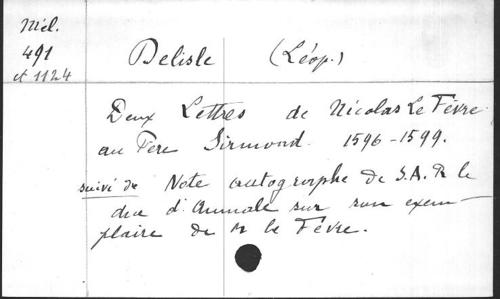 Mél.
491
et 1124
Delisle (Léop.)
Deux Lettres de Nicolas Le Fèvre
au Père Sirmond. 1596-1599.
suivi de Note autographe de S.A.R le
duc d'Aumale sur son exem-
plaire de N. le Fèvre.